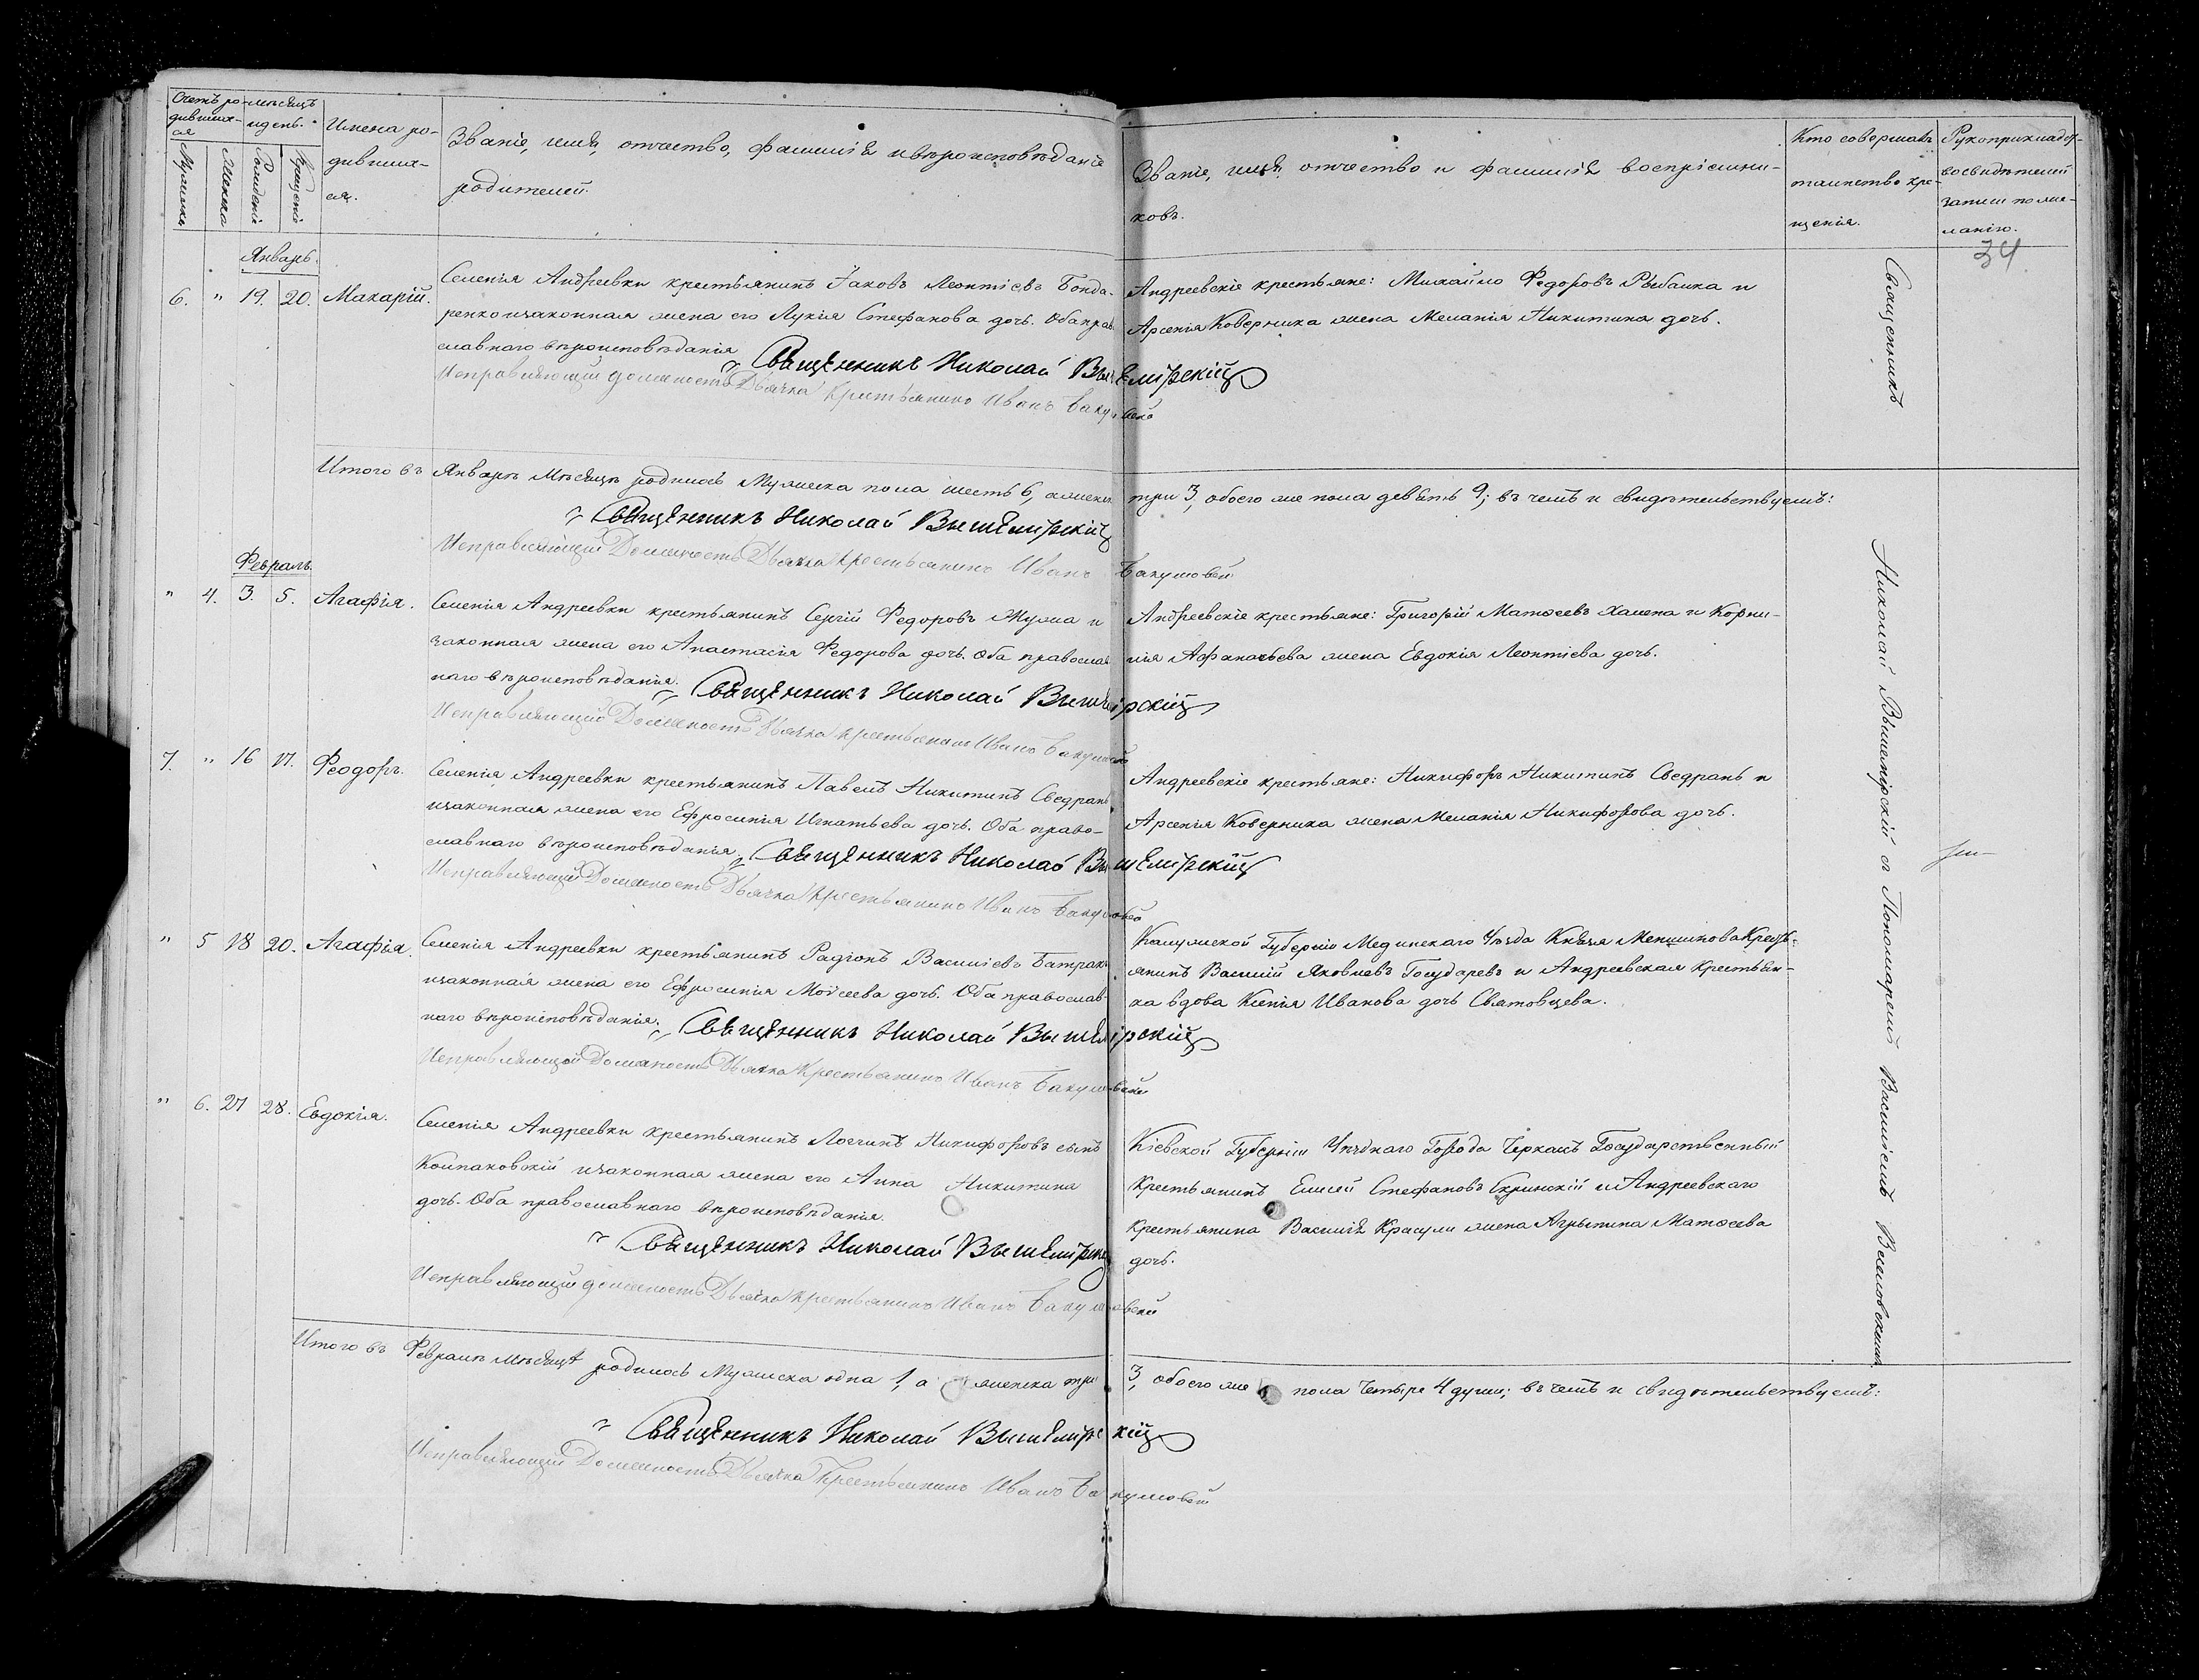 Счетъ ро-
дивших-
ся
Мужеска
Женска
мѣсяцъ
и день.
Рожденія
Крещенія
Имена ро-
дивших-
ся.
Званіе, имя, отчество, фамилія и вѣроисповѣданіе
родителей.
Званіе, имя, отчество и фамилія воспріемни-
ковъ.
Кто совершалъ
таинство кре-
щенія.
Рукоприкладст-
во свидѣтелей
записи по же-
ланію.
34
Январь.
6. " 19. 20. Макарій.
Селенія Андреевки крестьянинъ Іаковъ Леонтіевъ Бонда-
ренко и законная жена его Лукія Стефанова дочь. Оба прав
славнаго вѣроисповѣданія
Священникъ Николай Вышемірскій
Исправляющій должность Дьячка Крестьянинъ Иванъ
Андреевскіе крестьяне: Михайло Федоровъ Рыбалка и
Арсенія Коверника жена Меланія Никитина дочь.
Итого въ Январѣ Мѣсяцѣ родилось Мужеска пола шесть 6, а женска три 3, обоего же пола девять 9; въ чемъ и свидѣтельствуемъ:
Священникъ Николай Вышемірскій
Исправляющій Должность Дьячка Крестьянинъ Иванъ
Февраль.
" 4. 3. 5. Агафія.
Селенія Андреевки крестьянинъ Сергій Федоровъ Жужа и
законная жена его Анастасія Федорова дочь. Оба православ
наго вѣроисповѣданія.
Священникъ Николай Вышемірскій
Исправляющій Должность Дьячка крестьянинъ Иванъ
Андреевскіе крестьяне: Григорій Матѳеевъ Халепа и Корни-
лія Афанасьева жена Евдокія Леонтіева дочь.
7. " 16 17. Феодоръ.
Селенія Андреевки крестьянинъ Павелъ Никитинъ Сведранъ
и законная жена его Ефросинія Игнатьева дочь. Оба право-
славнаго вѣроисповѣданія.
Священникъ Николай Вышемірскій
Исправляющій Должность Дьячка Крестьянинъ Иванъ
Андреевскіе крестьяне: Никифоръ Никитинъ Сведранъ и
Арсенія Коверника жена Меланія Никифорова дочь.
" 5 18 20. Агафія.
Селенія Андреевки крестьянинъ Радіонъ Василіевъ Батрак
и законная жена его Ефросинія Моѵсеева дочь. Оба православ-
наго вѣроисповѣданія.
Священникъ Николай Вышемірскій
Исправляющій Должность Дьячка Крестьянинъ Иванъ
Калужской Губерніи Медынскаго Уѣзда Князя Меншикова Кресть-
янинъ Василій Яковлевъ Государевъ и Андреевская Крестьян-
ка вдова Ксенія Иванова дочь Святовцева.
" 6. 27 28. Евдокія.
Селенія Андреевки крестьянинъ Логгинъ Никифоровъ сынъ
Колпаковскій и законная жена его Анна Никитина
дочь. Оба православнаго вѣроисповѣданія.
Священникъ Николай Вышемірскій
Исправляющій должность Дьячка крестьянинъ Иванъ
Кіевской Губерніи Уѣзднаго Города Черкасъ Государственный
Крестьянинъ Елисей Стефановъ Скринскій и Андреевскаго
Крестьянина Василія Красули жена Агрыпина Матѳеева
дочь.
Итого въ Февралѣ Мѣсяцѣ родилось Мужеска одна 1, а женска три 3, обоего же пола Четыре 4 души; въ чемъ и свидѣтельствуемъ:
Священникъ Николай Вышемірскій
Исправляющій Должность Дьячка Крестьянинъ Иванъ
Священникъ
Николай Вышемірскій съ Пономаремъ Василіемъ